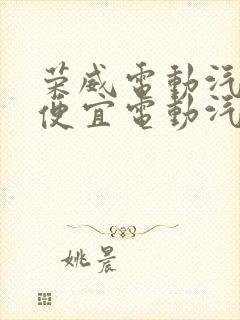 荣威電動汽
便宜電動汽
姚晨